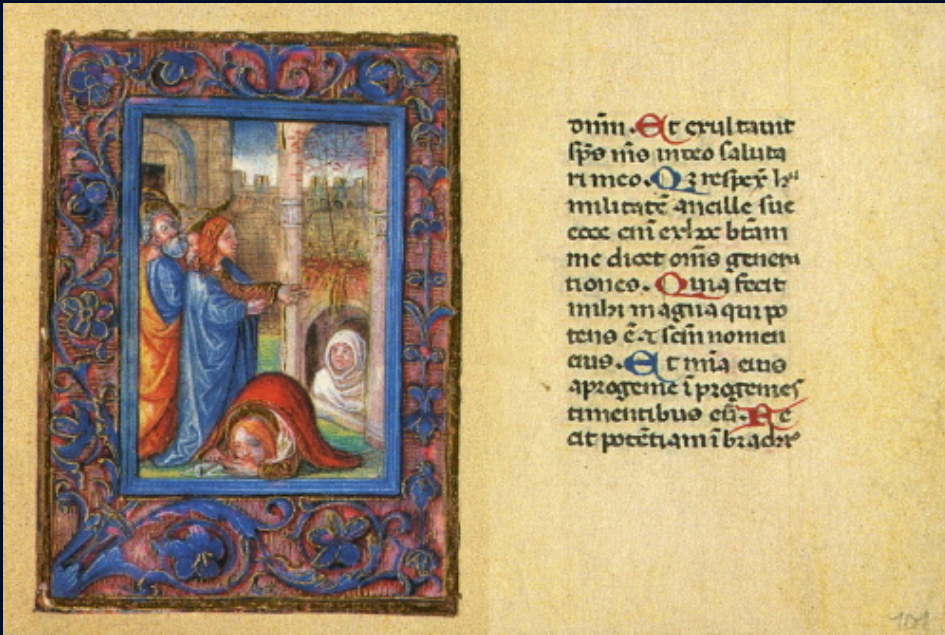 dnm. Et exultavit
sps ms in deo saluta
ri meo. Qz respex hu
militatē ancille sue
ecce eni ex hoc btam
me dicet oms genera
tiones. Quia fecit
mihi magna qui po
tens ē. ⁊ scm nomen
eius. Et mia eius
aprogenie ī progenies
timentibus eū. Fe
cit potētiam ī brachio
101